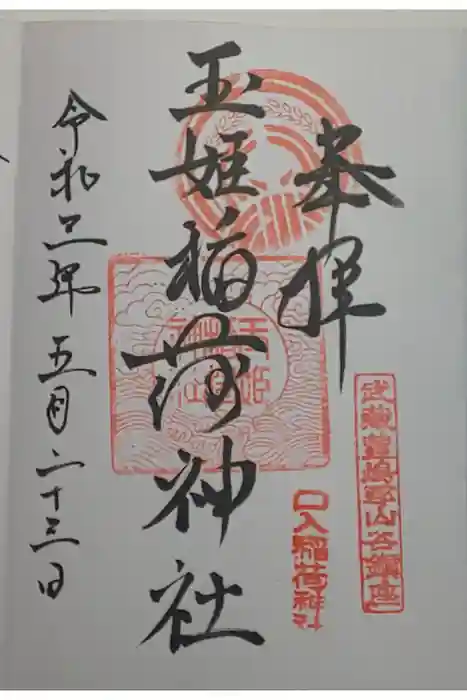 奉拝
武蔵豊嶋郡山谷鎮座
口入稲荷神社
玉姫稲荷神社
玉姫稲荷神社
令和三年五月二十三日